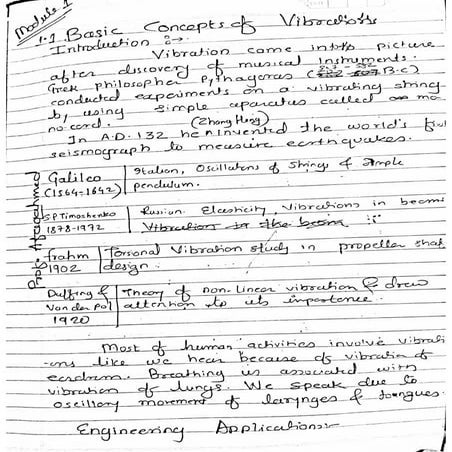 Module 1
1.1 Basic Concepts of Vibrations
Introduction :-
Vibration came into picture
after discovery of musical instruments.
Greek philosopher Pythagoras (582 507 B.C)
conducted experiments on a vibrating string
by using simple aparatus called mo
nocord.
(Zhang Heng)
In A.D. 132 he invented the world's first
seismograph to measure earthquakes.
Galileo
(1564-1642)
Italian, Oscillations of Strings & Simple
pendulum.
S.P Timoshenko
1878-1972
Russian Elasticity Vibrations in beams
Vibration in the beam
frahm
1902
Torsonal Vibration study in propeller shaft
design.
Duffing &
Van der pol
1920
Theory of non-linear vibration & drew
attention to its importance.
Most of human activities involve vibrati
-ons like we hear because of vibration of
eardrum. Breathing is associated with
vibration of lungs. We speak due to
oscillary movement of larynges & tongues.
Engineering Applications:-